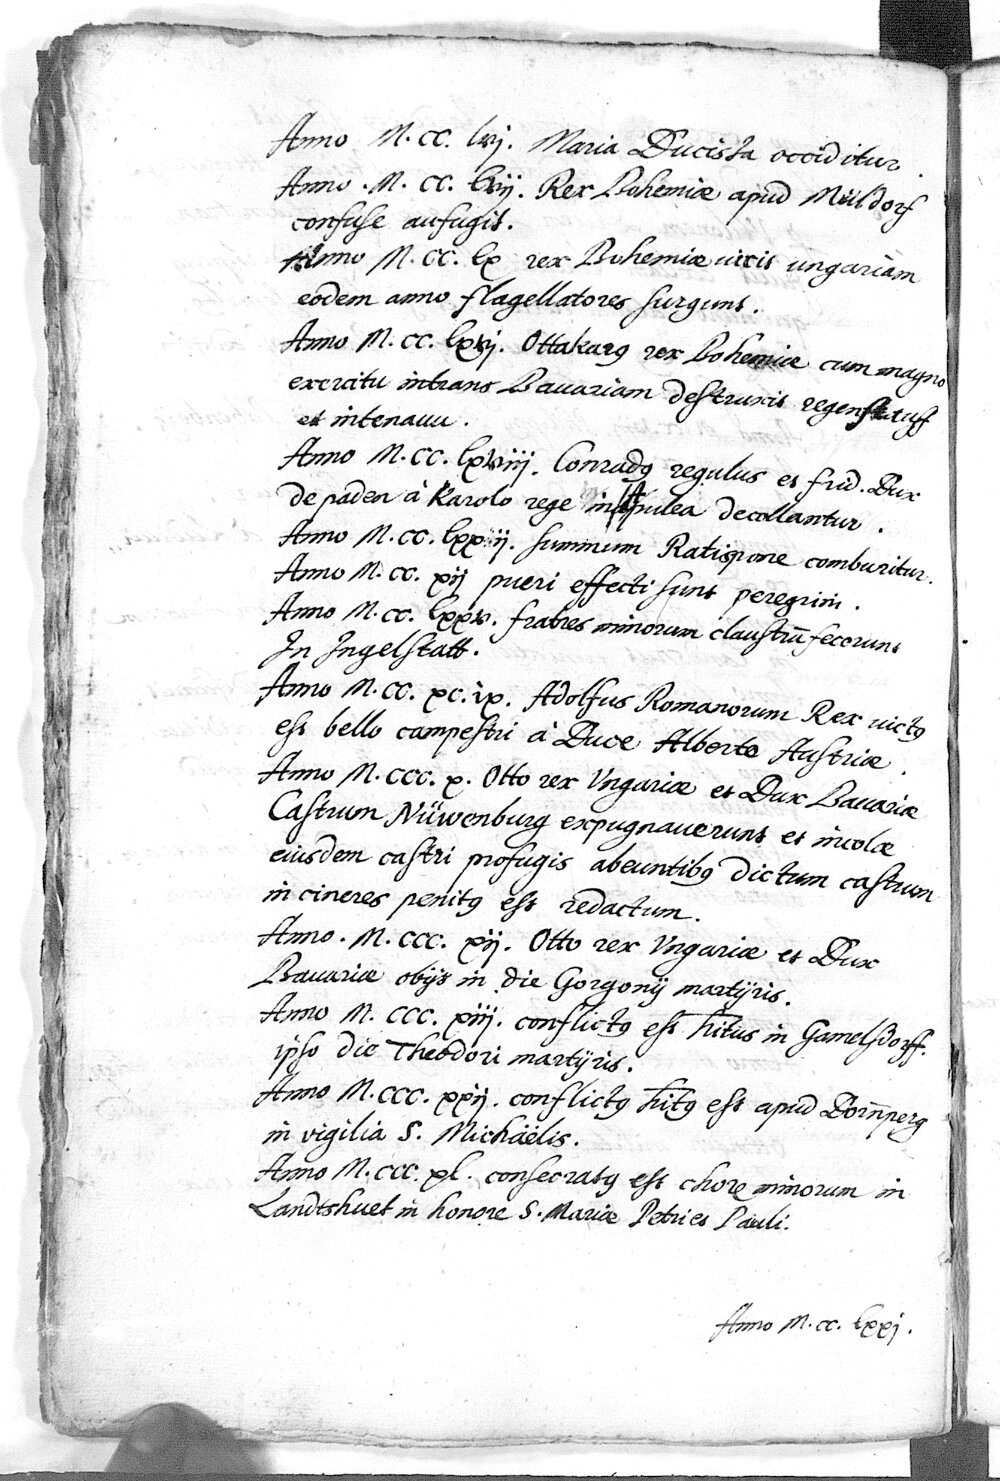 Anno M. CC. lvj. Maria Ducissa occiditur.
Anno. M. CC. lvij. Rex Bohemiæ apud Müldorf
confuse aufugit.
Anno M. CC. lx rex Bohemiæ vicit ungariam
eodem anno flagellatores surgunt.
Anno M. CC. lxvj. Ottakarꝰ rex Bohemiæ cum magno
exercitu intrans Bavariam destruxit regenstauff
et intenauu.
Anno M. CC. lxviij. Conradꝰ regulus et frid. Dux
de paden à Karolo rege in apulea decollantur.
Anno M. CC. lxxiij. summum Ratispone comburitur.
Anno M. CC. xij pueri effecti sunt peregrini.
Anno M. CC. lxxv. fratres minorum claustrū fecerunt
In Ingelstatt.
Anno M. CC. xc.ix. Adolfus Romanorum Rex victꝰ
est bello campestri à Duce Alberto Austriæ.
Anno M. CCC. x. Otto rex Vngariæ et Dux Bavariæ
Castrum Nüwenburg expugnaverunt et incolæ
eiusdem castri profugis abeuntibꝰ dictum castrum
in cineres penitꝰ est redactum.
Anno. M. CCC. xij. Otto rex Vngariæ et Dux
Bavariæ obijt in die Gorgonij martÿris.
Anno M. CCC. xiij. conflictꝰ est hitus in Gamelsdorff.
ipso die Theodori martÿris.
Anno M. CCC. xxij. conflictꝰ hitꝰ est apud Dorn̄perg
in vigilia S. Michäelis.
Anno M. CCC. xl. consecratꝰ est chorꝰ minorum in
Landtshuet in honore S. Mariæ Petri et Pauli.
Anno M. CC. lxxj.